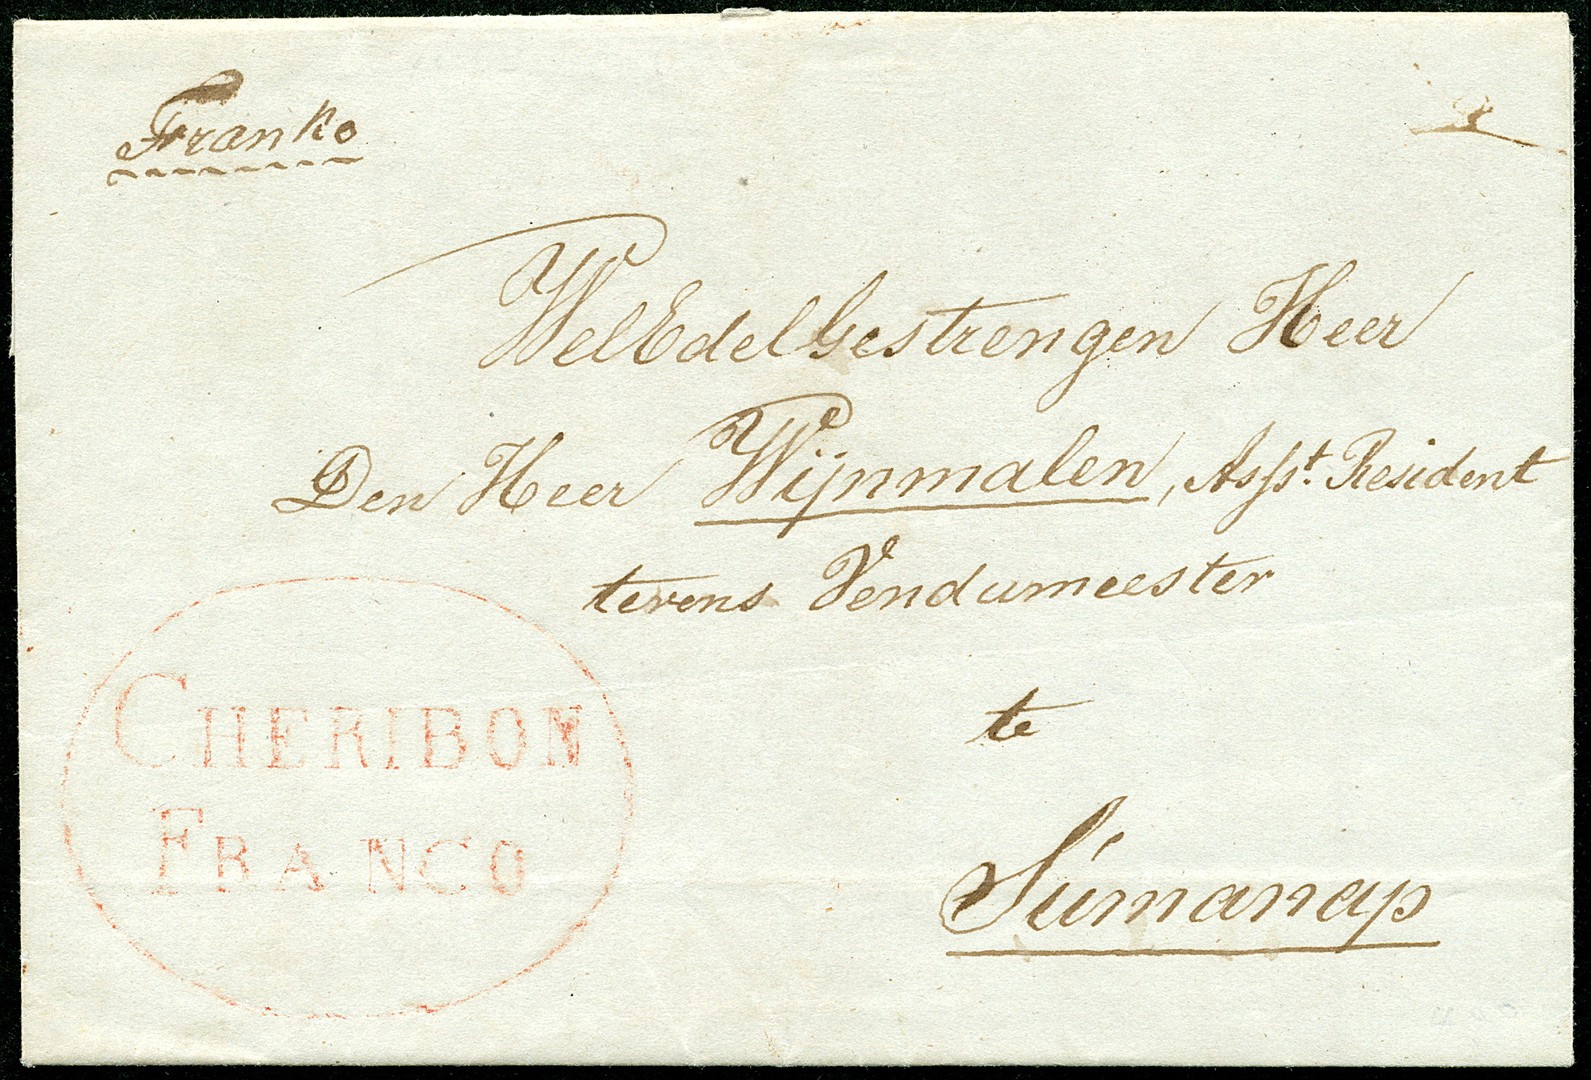 Franko
WelEdelGestrengen Heer
Den Heer Wijnmalen, Asst. Resident
tevens Vendumeester
te
Súmanap
CHERIBON
FRANCO